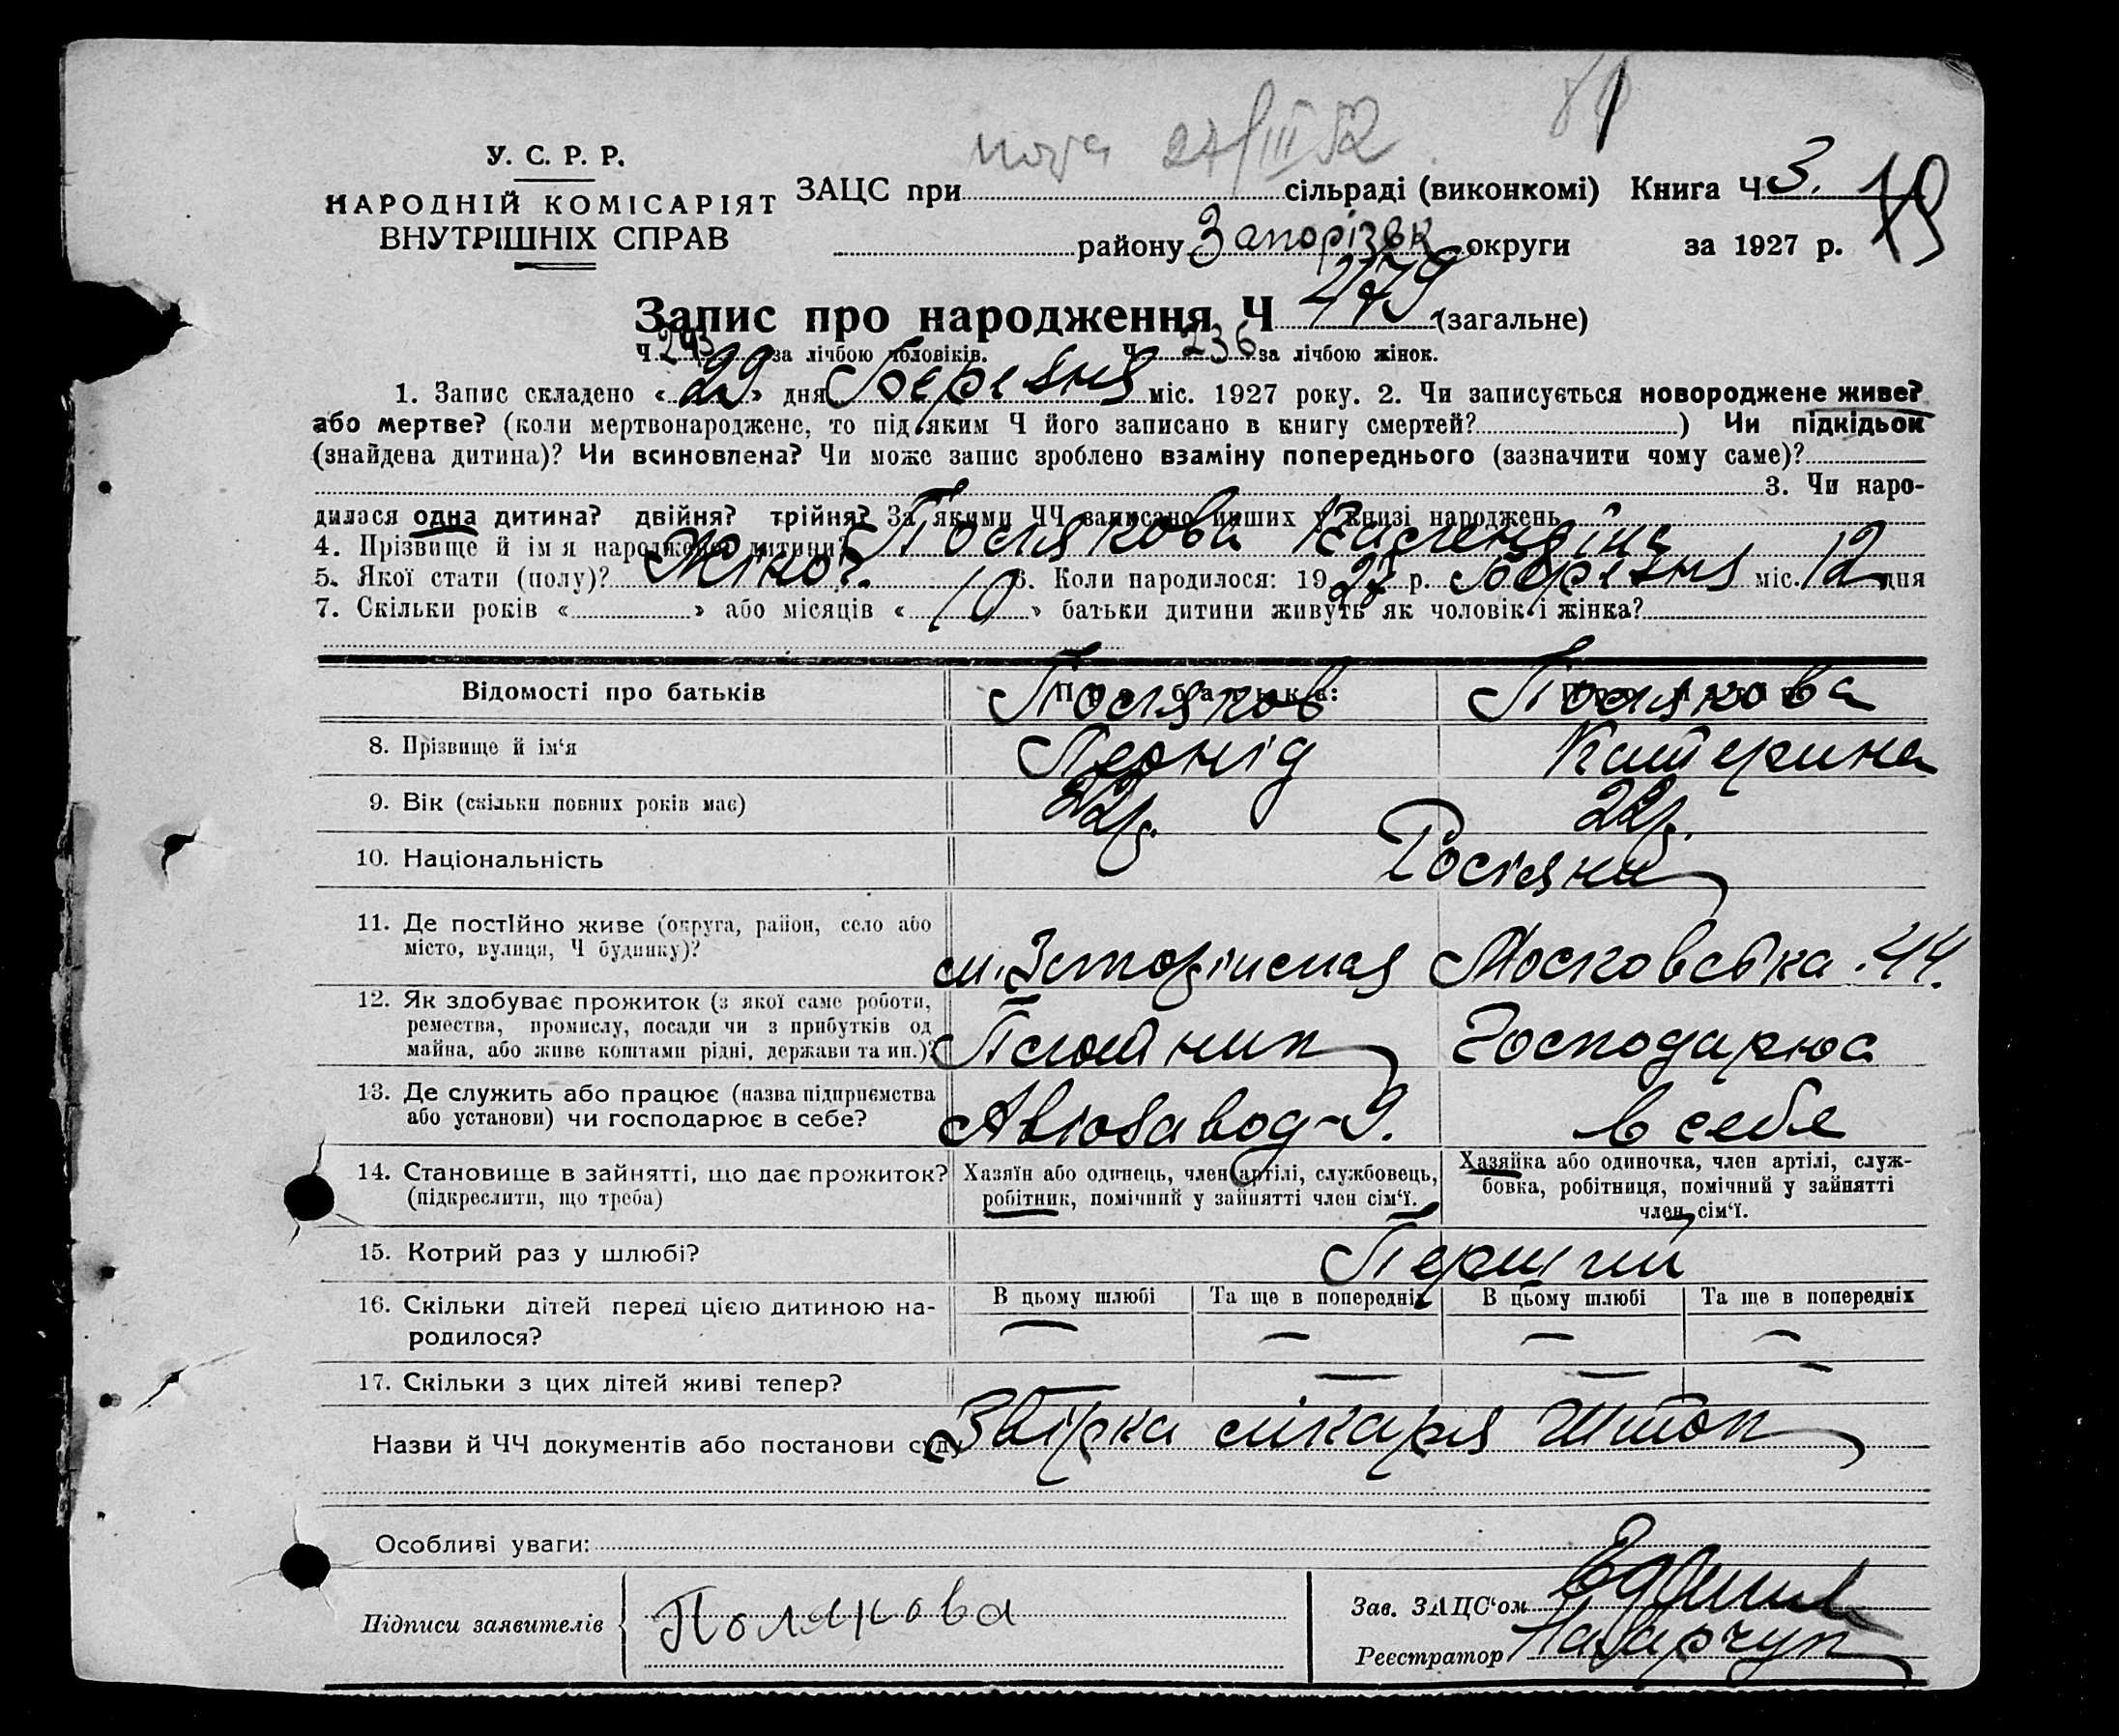 У. С. Р. Р.
НАРОДНІЙ КОМІСАРІЯТ
ВНУТРІШНІХ СПРАВ
27/III 52
ЗАЦС при сільраді (виконкомі) Книга Ч 3.
району Запорізьк округи за 1927 р.
Запис про народження Ч 479 (загальне)
Ч 243 за лічбою чоловіків. Ч 236 за лічбою жінок.
1. Запис складено «29» дня Березня міс. 1927 року. 2. Чи записується новороджене живе?
або мертве? (коли мертвонароджене, то під яким Ч його записано в книгу смертей? ) Чи підкідьок
(знайдена дитина)? Чи всиновлена? Чи може запис зроблено взаміну попереднього (зазначити чому саме)?
3. Чи наро-
дилася одна дитина? двійня? трійня? За якими ЧЧ записано инших у книзі народжень
4. Прізвище й ім'я народженої дитини? Полякова Валентіна
5. Якої стати (полу)? Жіноч. 6. Коли народилося: 1927 р. Березня міс. 12 дня
7. Скільки років « » або місяців « 10 » батьки дитини живуть як чоловік і жінка?
Відомості про батьків Про батька:
Поляков Полякова
8. Прізвище й ім‘я Леонід Катерина
9. Вік (скільки повних років має) 22р. 22р.
10. Національність Росіяни
11. Де постІйно живе (округа, район, село або
місто, вулиця, Ч будинку)? Московська 44.
12. Як здобуває прожиток (з якої саме роботи,
ремества, промислу, посади чи з прибутків од
майна, або живе коштами рідні, держави та ин.)? Плотник Господарює
13. Де служить або працює (назва підприємства
або установи) чи господарює в себе? Авіозавод-9. в себе
14. Становище в зайнятті, що дає прожиток?
(підкреслити, що треба)
Хазяїн або одинець, член артілі, службовець,
робітник, помічний у зайнятті член сім‘ї.
Хазяйка або одиночка, член артілі, служ-
бовка, робітниця, помічний у зайнятті
член сім‘ї.
15. Котрий раз у шлюбі? Перший
16. Скільки дітей перед цією дитиною на-
родилося?
В цьому шлюбі Та ще в попередніх В цьому шлюбі Та ще в попередніх
— — — —
17. Скільки з цих дітей живі тепер? — — — —
Назви й ЧЧ документів або постанови суду лікаря
Особливі уваги:
Підписи заявителів Полякова
Зав. ЗАЦС‘ом
Реєстратор